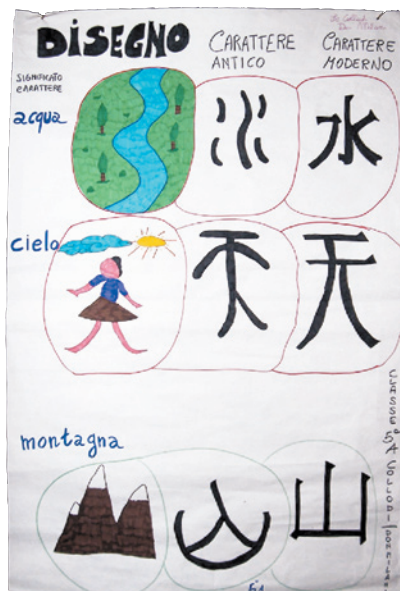 DISEGNO
CARATTERE
ANTICO
CARATTERE
MODERNO
SIGNIFICATO
CARATTERE
acqua
水
cielo
天
montagna
山
CLASSE 5ªA COLLODI